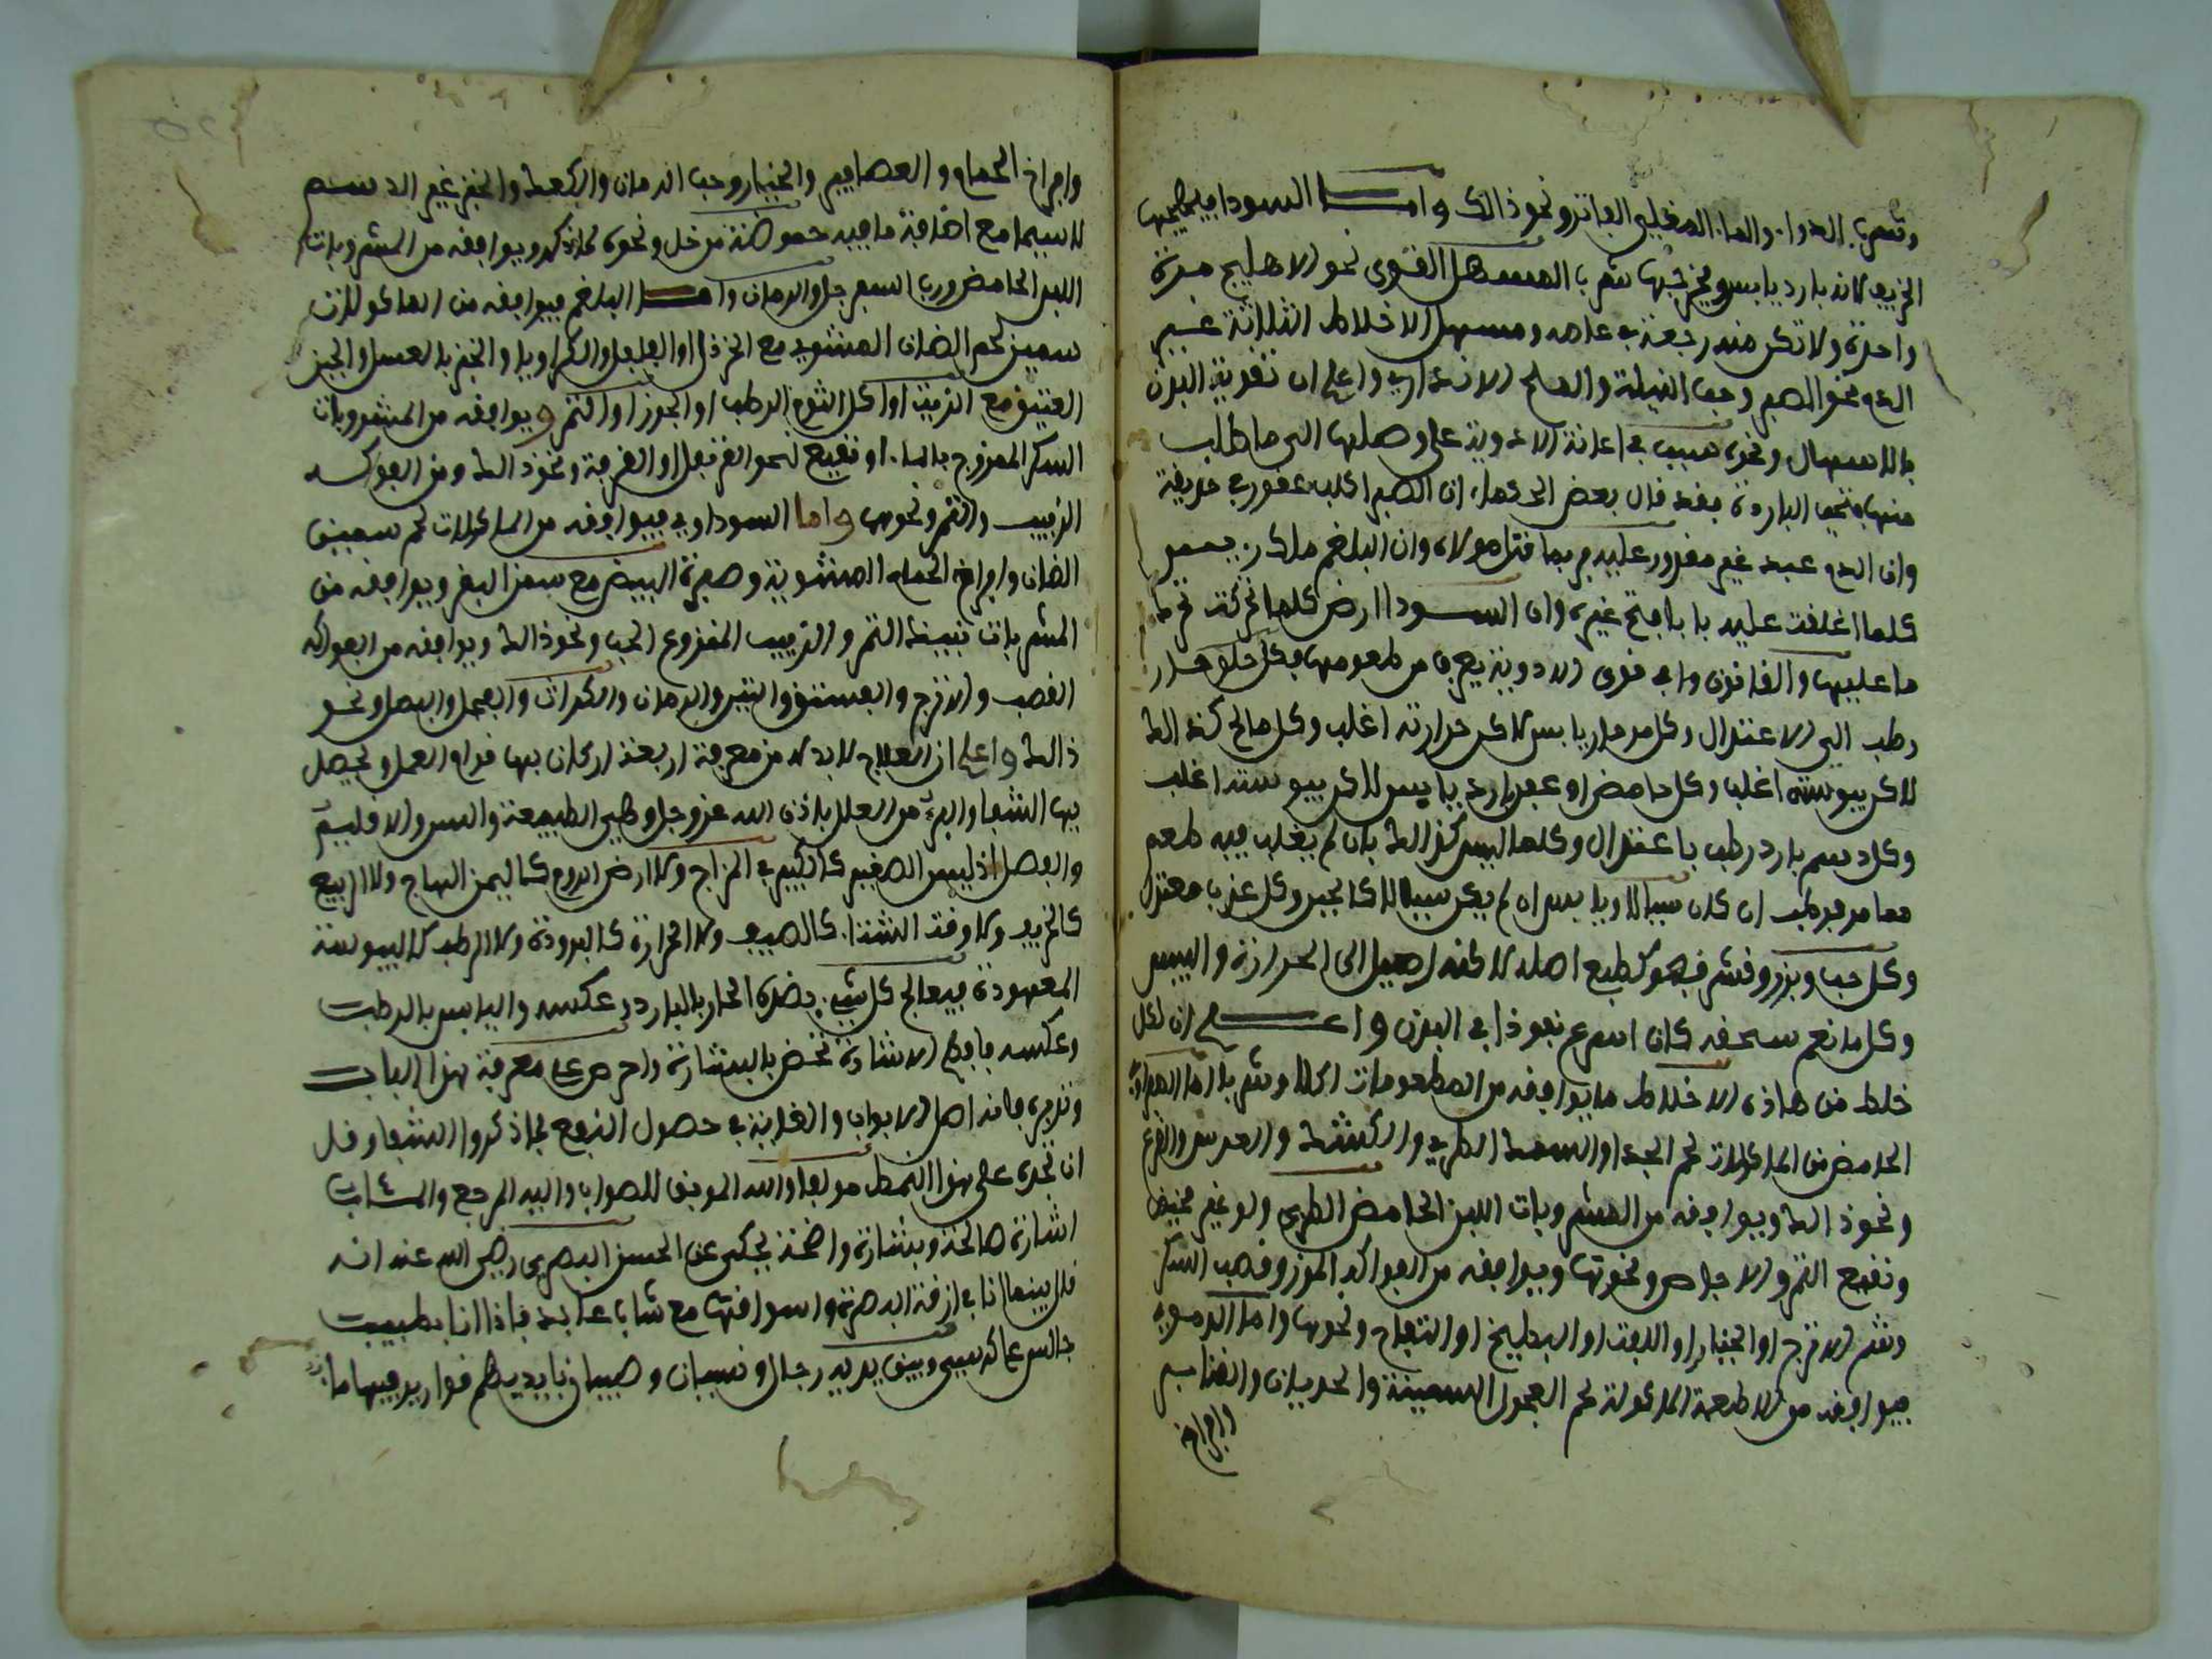 وتعرب الدوا. والما. المغلي الفاتر ونحو ذالك واما السودا فيهيجها
الخريف لانه بارد يابس ويخرجها شرب المسهل القوي نحو الاهليج مرة
واحدة ولا تكن منه رجعة في عامه ومسهل الاخلاط الثلاثة غير
الدم نحو الصبر وحب النيلة والملح الاندراني واعلم ان تقوية البدن
بالاسهال ونحوه سبب في اعانة الادوية على وصلها الى ما طلب
منها تحت الباردة فقد قال بعض الحكما، ان الصفرا كلب عقور في حديقة
وان الدم عبد غير مقدور عليه وربما قتل مولاه وان البلغم ملك
كلما اغلقت عليه بابا فتح غيره وان السودا ارض كلما تحركت تحرك
ما عليها والقانون في قوى الادوية يعرف من طعومها فكل حلو حار
رطب الى الاعتدال وكل مر حار يابس لاكن حرارته اغلب وكل مالح كذالك
لاكن يبوسته اغلب وكل حامض او عفص بارد يابس لاكن يبوسته اغلب
وكل دسم بارد رطب باعتدال وكلما ليس كذالك بان لم يغلب فيه طعم
مما مر فرطب ان كان سيالا ويابس ان لم يكن سيالا كالجبن وكل عذب معتدل
وكل حب وبزر وقشر فهو كطبع اصله لاكنه اميل الى الحرارة واليبس
وكل ما نعم سحقه كان اسرع نفوذا في البدن واعلم ان لكل
خلط من هاذه الاخلاط ما يوافقه من المطعومات اكلا وشربا اما الصفراوي
الحامض من الماكولات لحم الجدا والسمك الطري والكشك والعدس والقرع
ونحو ذالك ويوافقه من المشروبات اللبن الحامض الطري ولو غير مخيض
ونقيع التمر والاجاص ونحوها ويوافقه من الفواكه الموز وقصب السكر
وشم الاترج او الخيار او اللفت او البطيخ او التفاح ونحوها واما الدموي
فيوافقه من الاطعمة الماكولة لحم العجول السمينة والجديان والقنابر
وافراخ
وافراخ الحمام والعصافير والخيار وحب الرمان والكعك والخبز غير الدسم
لاسيما مع اضافة ما فيه حموضة من خل ونحوه كما ذكر ويوافقه من المشروبات
اللبن الحامض ورب السفرجل والرمان واما البلغم فيوافقه من الماكولات
سمين لحم الضان المشوي مع الخردل او الفلفل والكراويا والخبز بالعسل والجبن
العتيق مع الزيت او اكل الثوم الرطب او الجوز او التمر ويوافقه من المشروبات
السكر الممزوج بالما. او نقيع نحو القرنفل او القرفة ونحو ذالك ومن الفواكه
الزبيب والتمر ونحوها واما السوداوي فيوافقه من الماكولات لحم سمين
الضان وافراخ الحمام المشوية وصفرة البيض مع سمن البقر ويوافقه من
المشروبات نبيذ التمر والزبيب المنزوع الحب ونحو ذالك ويوافقه من الفواكه
القصب والاترج والفستق والتين والرمان والكراث والفجل والبصل ونحو
ذالك واعلم ان العلاج لا بد له من معرفة اربعة اركان بها قوام العمل ويحصل
بها الشفا والبرء من العلل باذن الله عز وجل وهي الطبيعة والسن والاقليم
والفصل اذ ليس الصغير كالكبير في المزاج ولا ارض الروم كاليمن ولا الربيع
كالخريف ولا وقت الشتا. كالصيف ولا الحرارة كالبرودة ولا الرطب كاليبوسة
المعهودة فيعالج كل شيء بضده الحار بالبارد وعكسه واليابس بالرطب
وعكسه فافهم الاشارة تحض بالبشارة واحرص على معرفة هذا الباب
وتدبره فانه اصل الابواب والغاية في حصول النفع كما ذكروا الشفا وقل
ان تجده على هذا النمط مولفا والله الموفق للصواب واليه المرجع والمئاب
اشارة صالحة وبشارة واضحة يحكى عن الحسن البصري رضي الله عنه انه
قال بينما انا في ازقة البصرة واسواقها مع شاب عابد فاذا انا بطبيب
جالس على كرسي وبين يديه رجال ونسان وصبيان بايديهم قوارير فيها ما